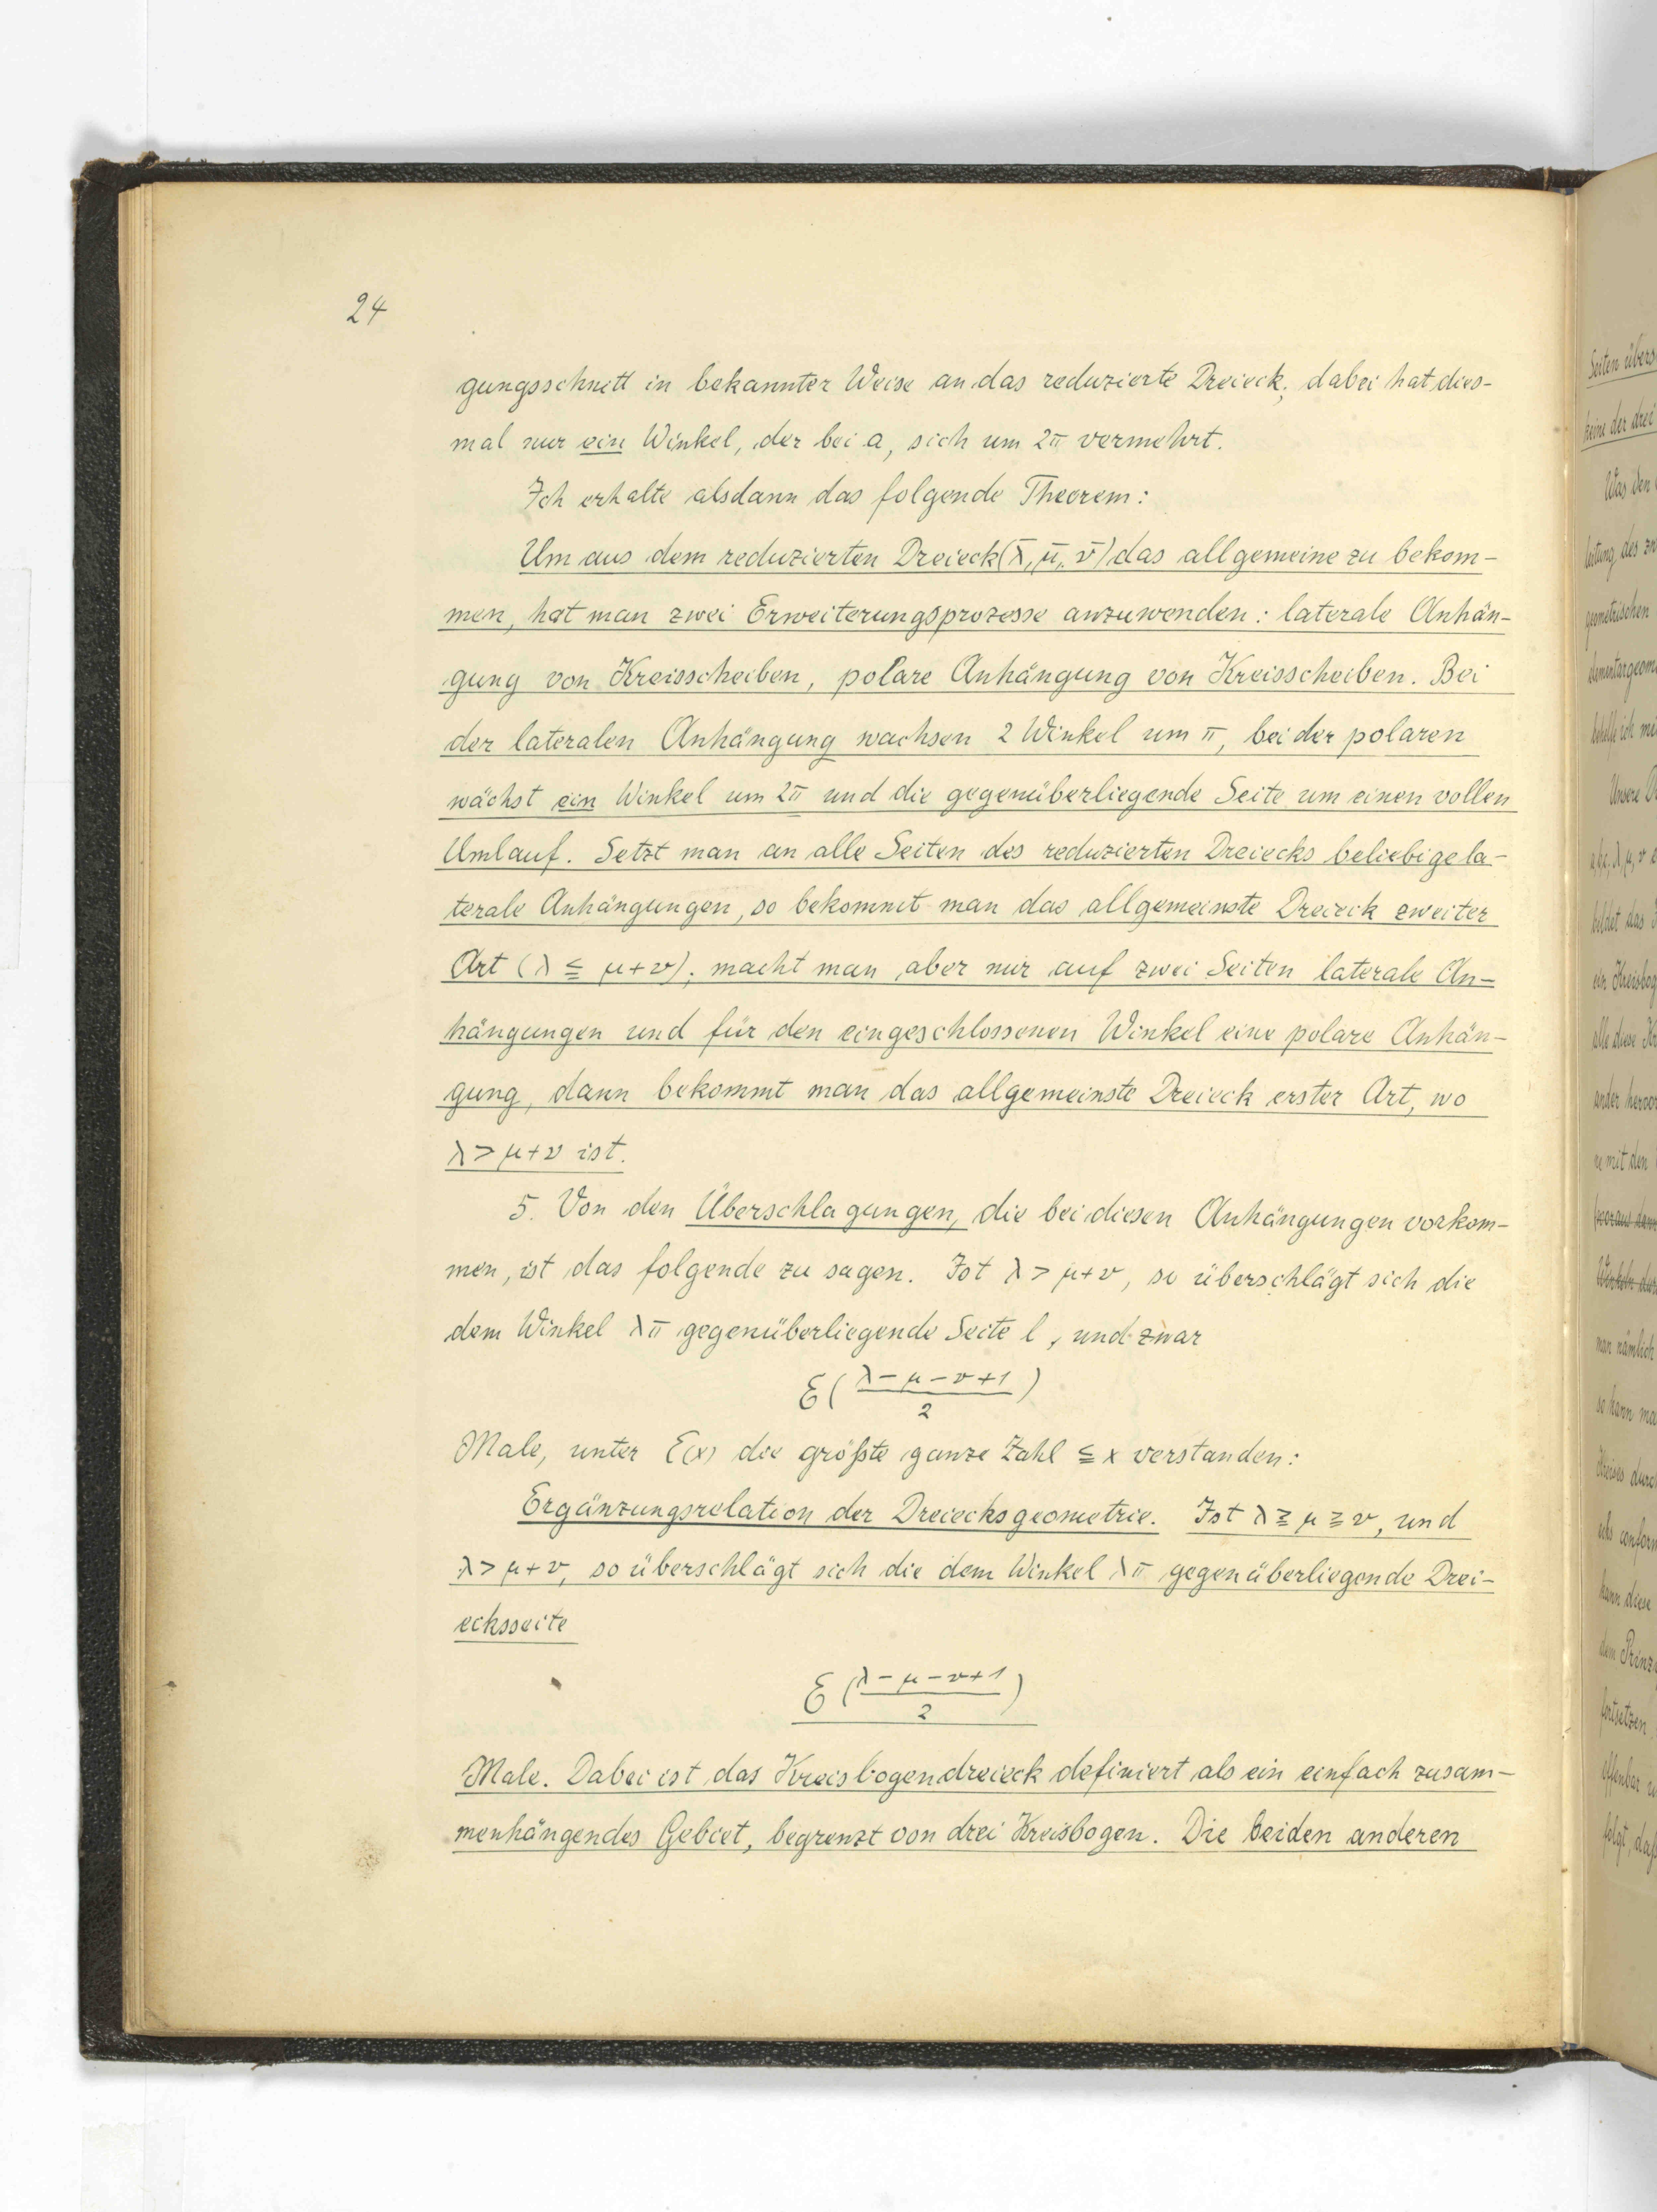 24
gungsschnitt in bekannter Weise an das reduzierte Dreieck; dabei hat dies-
mal nur ein Winkel, der bei a, sich um 2π vermehrt.
Ich erhalte alsdann das folgende Theorem:
Um aus dem reduzierten Dreieck (λ̄, μ̄, ν̄) das allgemeine zu bekom-
men, hat man zwei Erweiterungsprozesse anzuwenden: laterale Anhän-
gung von Kreisscheiben, polare Anhängung von Kreisscheiben. Bei
der lateralen Anhängung wachsen 2 Winkel um π, bei der polaren
wächst ein Winkel um 2π und die gegenüberliegende Seite um einen vollen
Umlauf. Setzt man an alle Seiten des reduzierten Dreiecks beliebige la-
terale Anhängungen, so bekommt man das allgemeinste Dreieck zweiter
Art (λ ≦ μ+ν); macht man aber nur auf zwei Seiten laterale An-
hängungen und für den eingeschlossenen Winkel eine polare Anhän-
gung, dann bekommt man das allgemeinste Dreieck erster Art, wo
λ > μ+ν ist.
5. Von den Überschlagungen, die bei diesen Anhängungen vorkom-
men, ist das folgende zu sagen. Ist λ > μ+ν, so überschlägt sich die
dem Winkel λπ gegenüberliegende Seite l, und zwar
E((λ-μ-ν+1)/2)
Male, unter E(x) die größte ganze Zahl ≦ x verstanden:
Ergänzungsrelation der Dreiecksgeometrie. Ist λ ≧ μ ≧ ν, und
λ > μ+ν, so überschlägt sich die dem Winkel λπ gegenüberliegende Drei-
ecksseite
E((λ-μ-ν+1)/2)
Male. Dabei ist das Kreisbogendreieck definiert als ein einfach zusam-
menhängendes Gebiet, begrenzt von drei Kreisbogen. Die beiden anderen
Seiten übers
keine der drei
Was den
geometrischen
Unsere
bildet das
ander hervor
man nämlich
so kann ma
kann diese
dem Prinz
fortsetzen
offenbar
folgt, daß